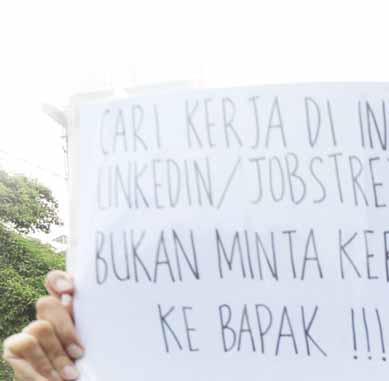 CARI KERJA DI IN
LINKEDIN/JOBSTRE
BUKAN MINTA KER
KE BAPAK !!!